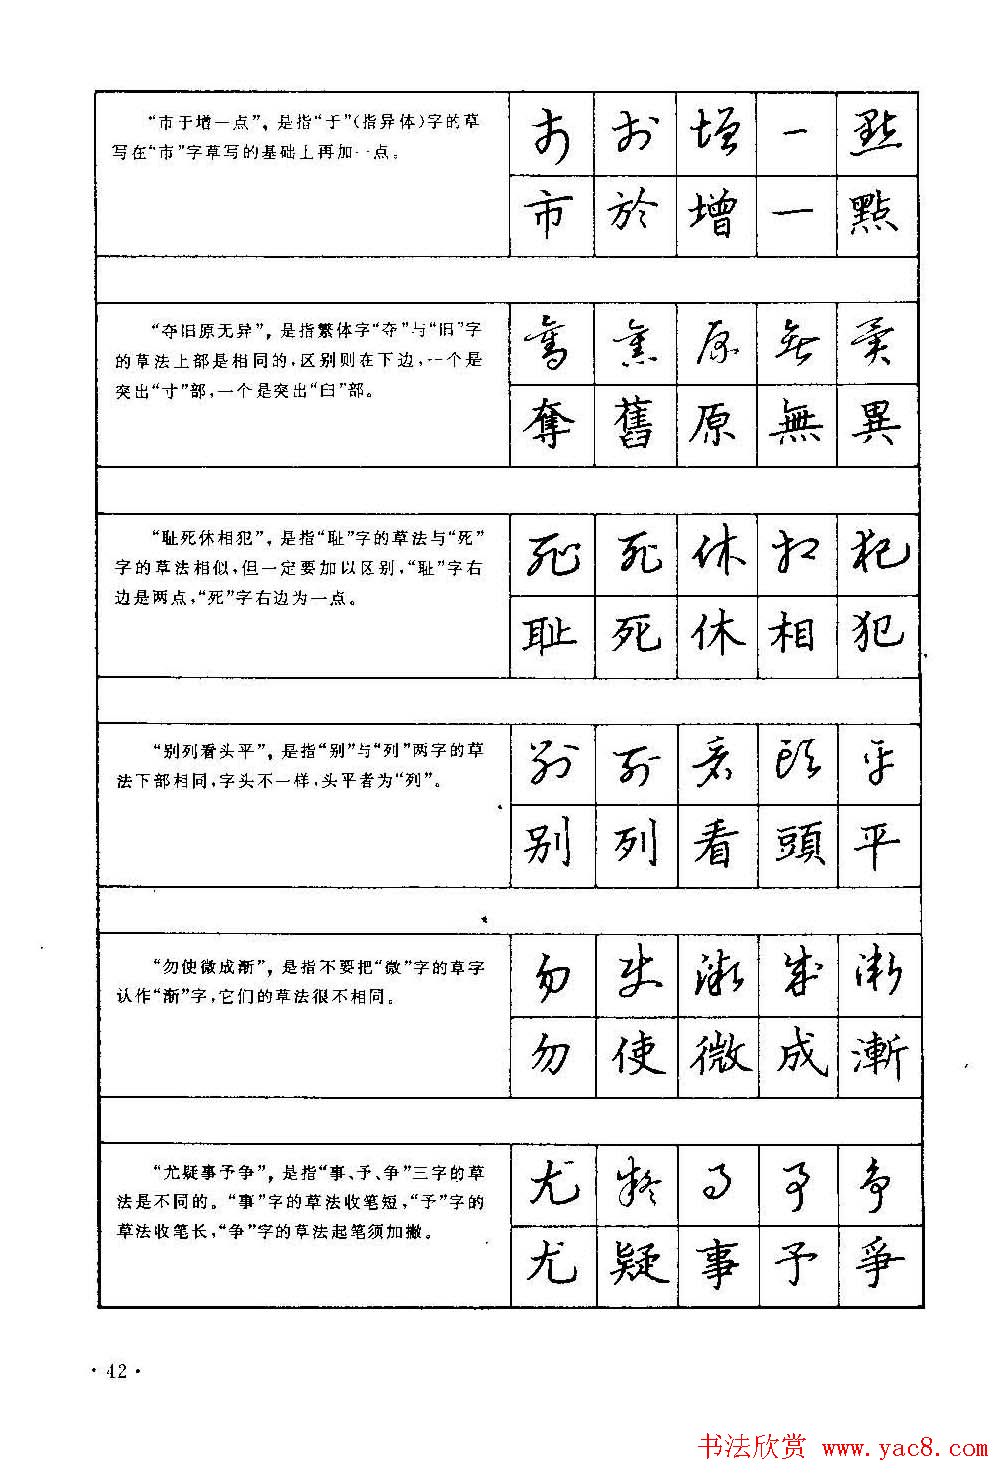 “市于增一点”，是指“于”(指异体)字的草
写在“市”字草写的基础上再加一点。
市 於 增 一 點
市 於 增 一 點
“夺旧原无异”，是指繁体字“夺”与“旧”字
的草法上部是相同的，区别则在下边，一个是
突出“寸”部，一个是突出“臼”部。
奪 舊 原 無 異
奪 舊 原 無 異
“耻死休相犯”，是指“耻”字的草法与“死”
字的草法相似，但一定要加以区别，“耻”字右
边是两点，“死”字右边为一点。
耻 死 休 相 犯
耻 死 休 相 犯
“别列看头平”，是指“别”与“列”两字的草
法下部相同，字头不一样，头平者为“列”。
别 列 看 頭 平
别 列 看 頭 平
“勿使微成渐”，是指不要把“微”字的草字
认作“渐”字，它们的草法很不相同。
勿 使 微 成 漸
勿 使 微 成 漸
“尤疑事予争”，是指“事、予、争”三字的草
法是不同的。“事”字的草法收笔短，“予”字的
草法收笔长，“争”字的草法起笔须加撇。
尤 疑 事 予 爭
尤 疑 事 予 爭
·42·
书法欣赏 www.yac8.com